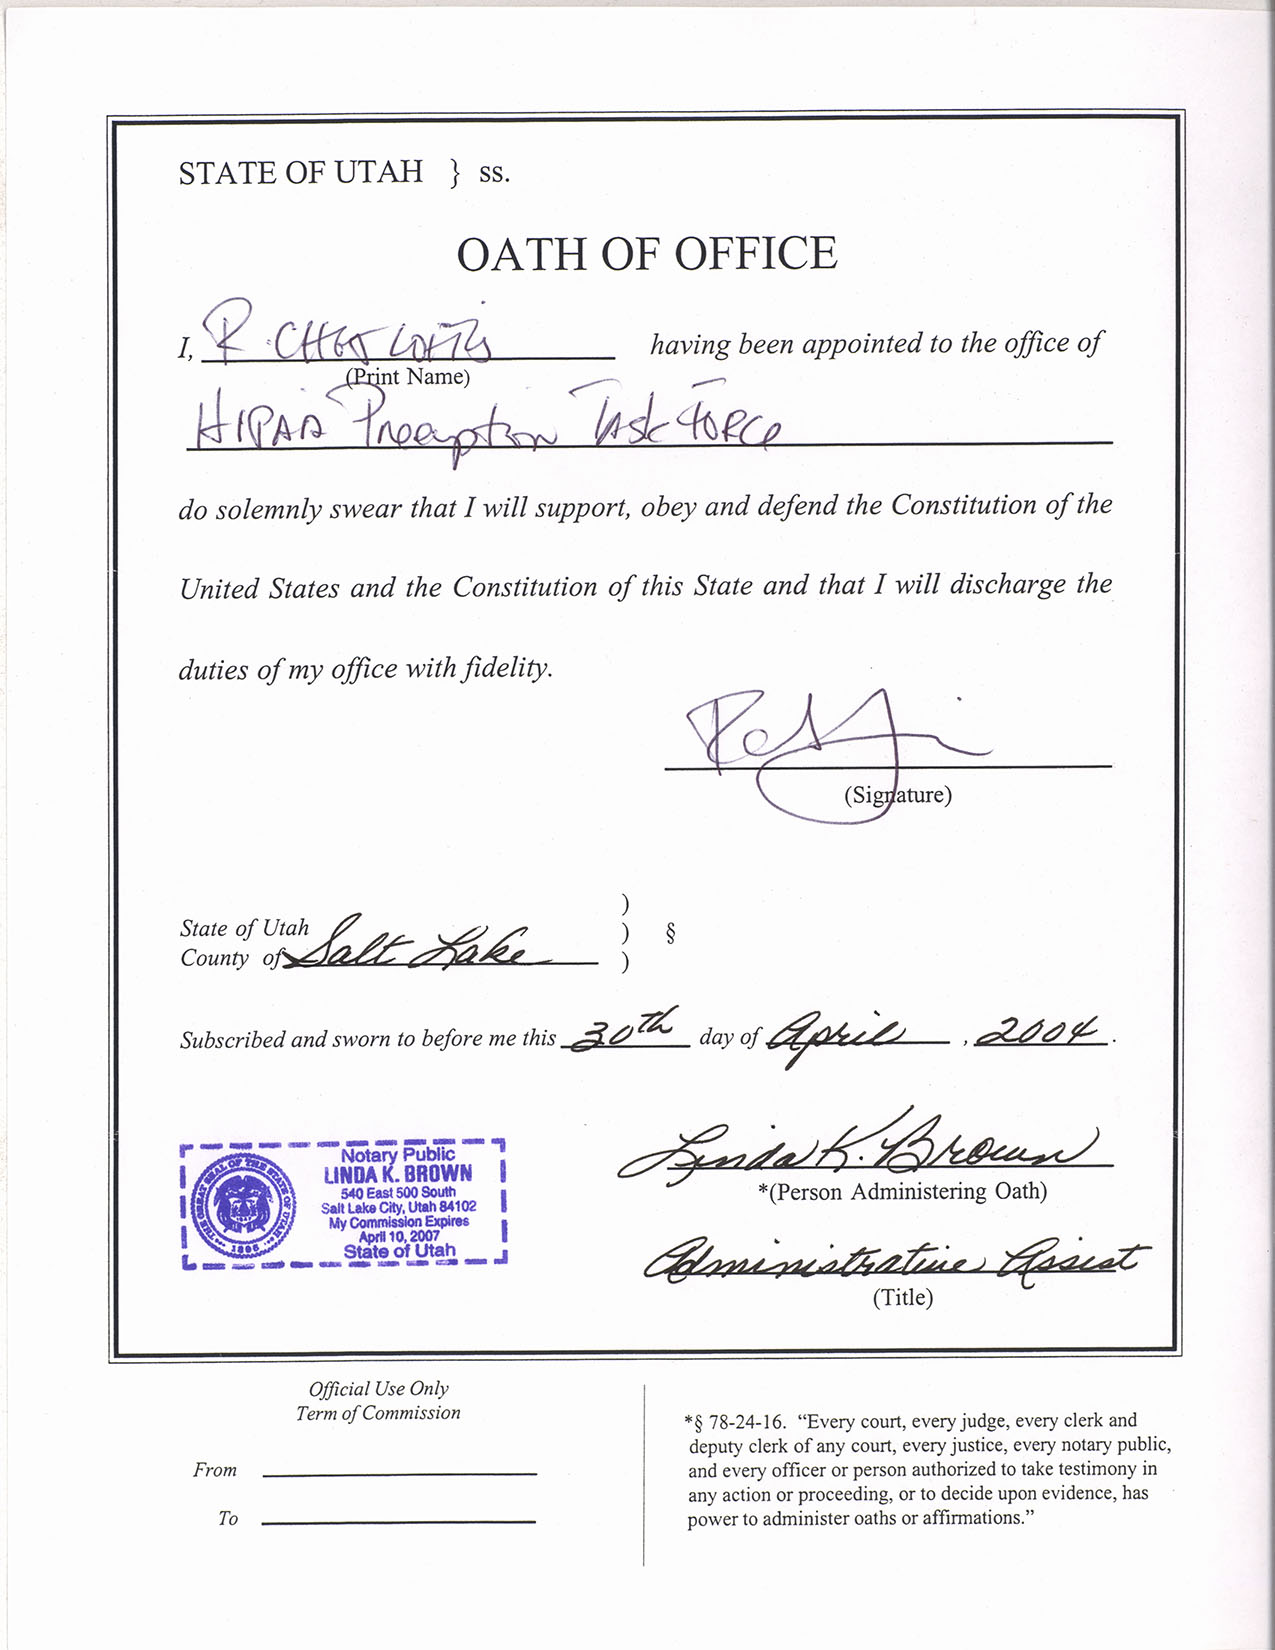 STATE OF UTAH } ss.
OATH OF OFFICE
I, R. CHET LOFTIS having been appointed to the office of
(Print Name)
HIPAA Preemption Task Force
do solemnly swear that I will support, obey and defend the Constitution of the
United States and the Constitution of this State and that I will discharge the
duties of my office with fidelity.
(Signature)
)
State of Utah ) §
County of Salt Lake )
Subscribed and sworn to before me this 30th day of April , 2004 .
Notary Public
LINDA K. BROWN
540 East 500 South
Salt Lake City, Utah 84102
My Commission Expires
April 10, 2007
State of Utah
THE GREAT SEAL OF THE STATE OF UTAH
1896
Linda K. Brown
*(Person Administering Oath)
Administrative Assist
(Title)
Official Use Only
Term of Commission
From
To
*§ 78-24-16. “Every court, every judge, every clerk and
deputy clerk of any court, every justice, every notary public,
and every officer or person authorized to take testimony in
any action or proceeding, or to decide upon evidence, has
power to administer oaths or affirmations.”